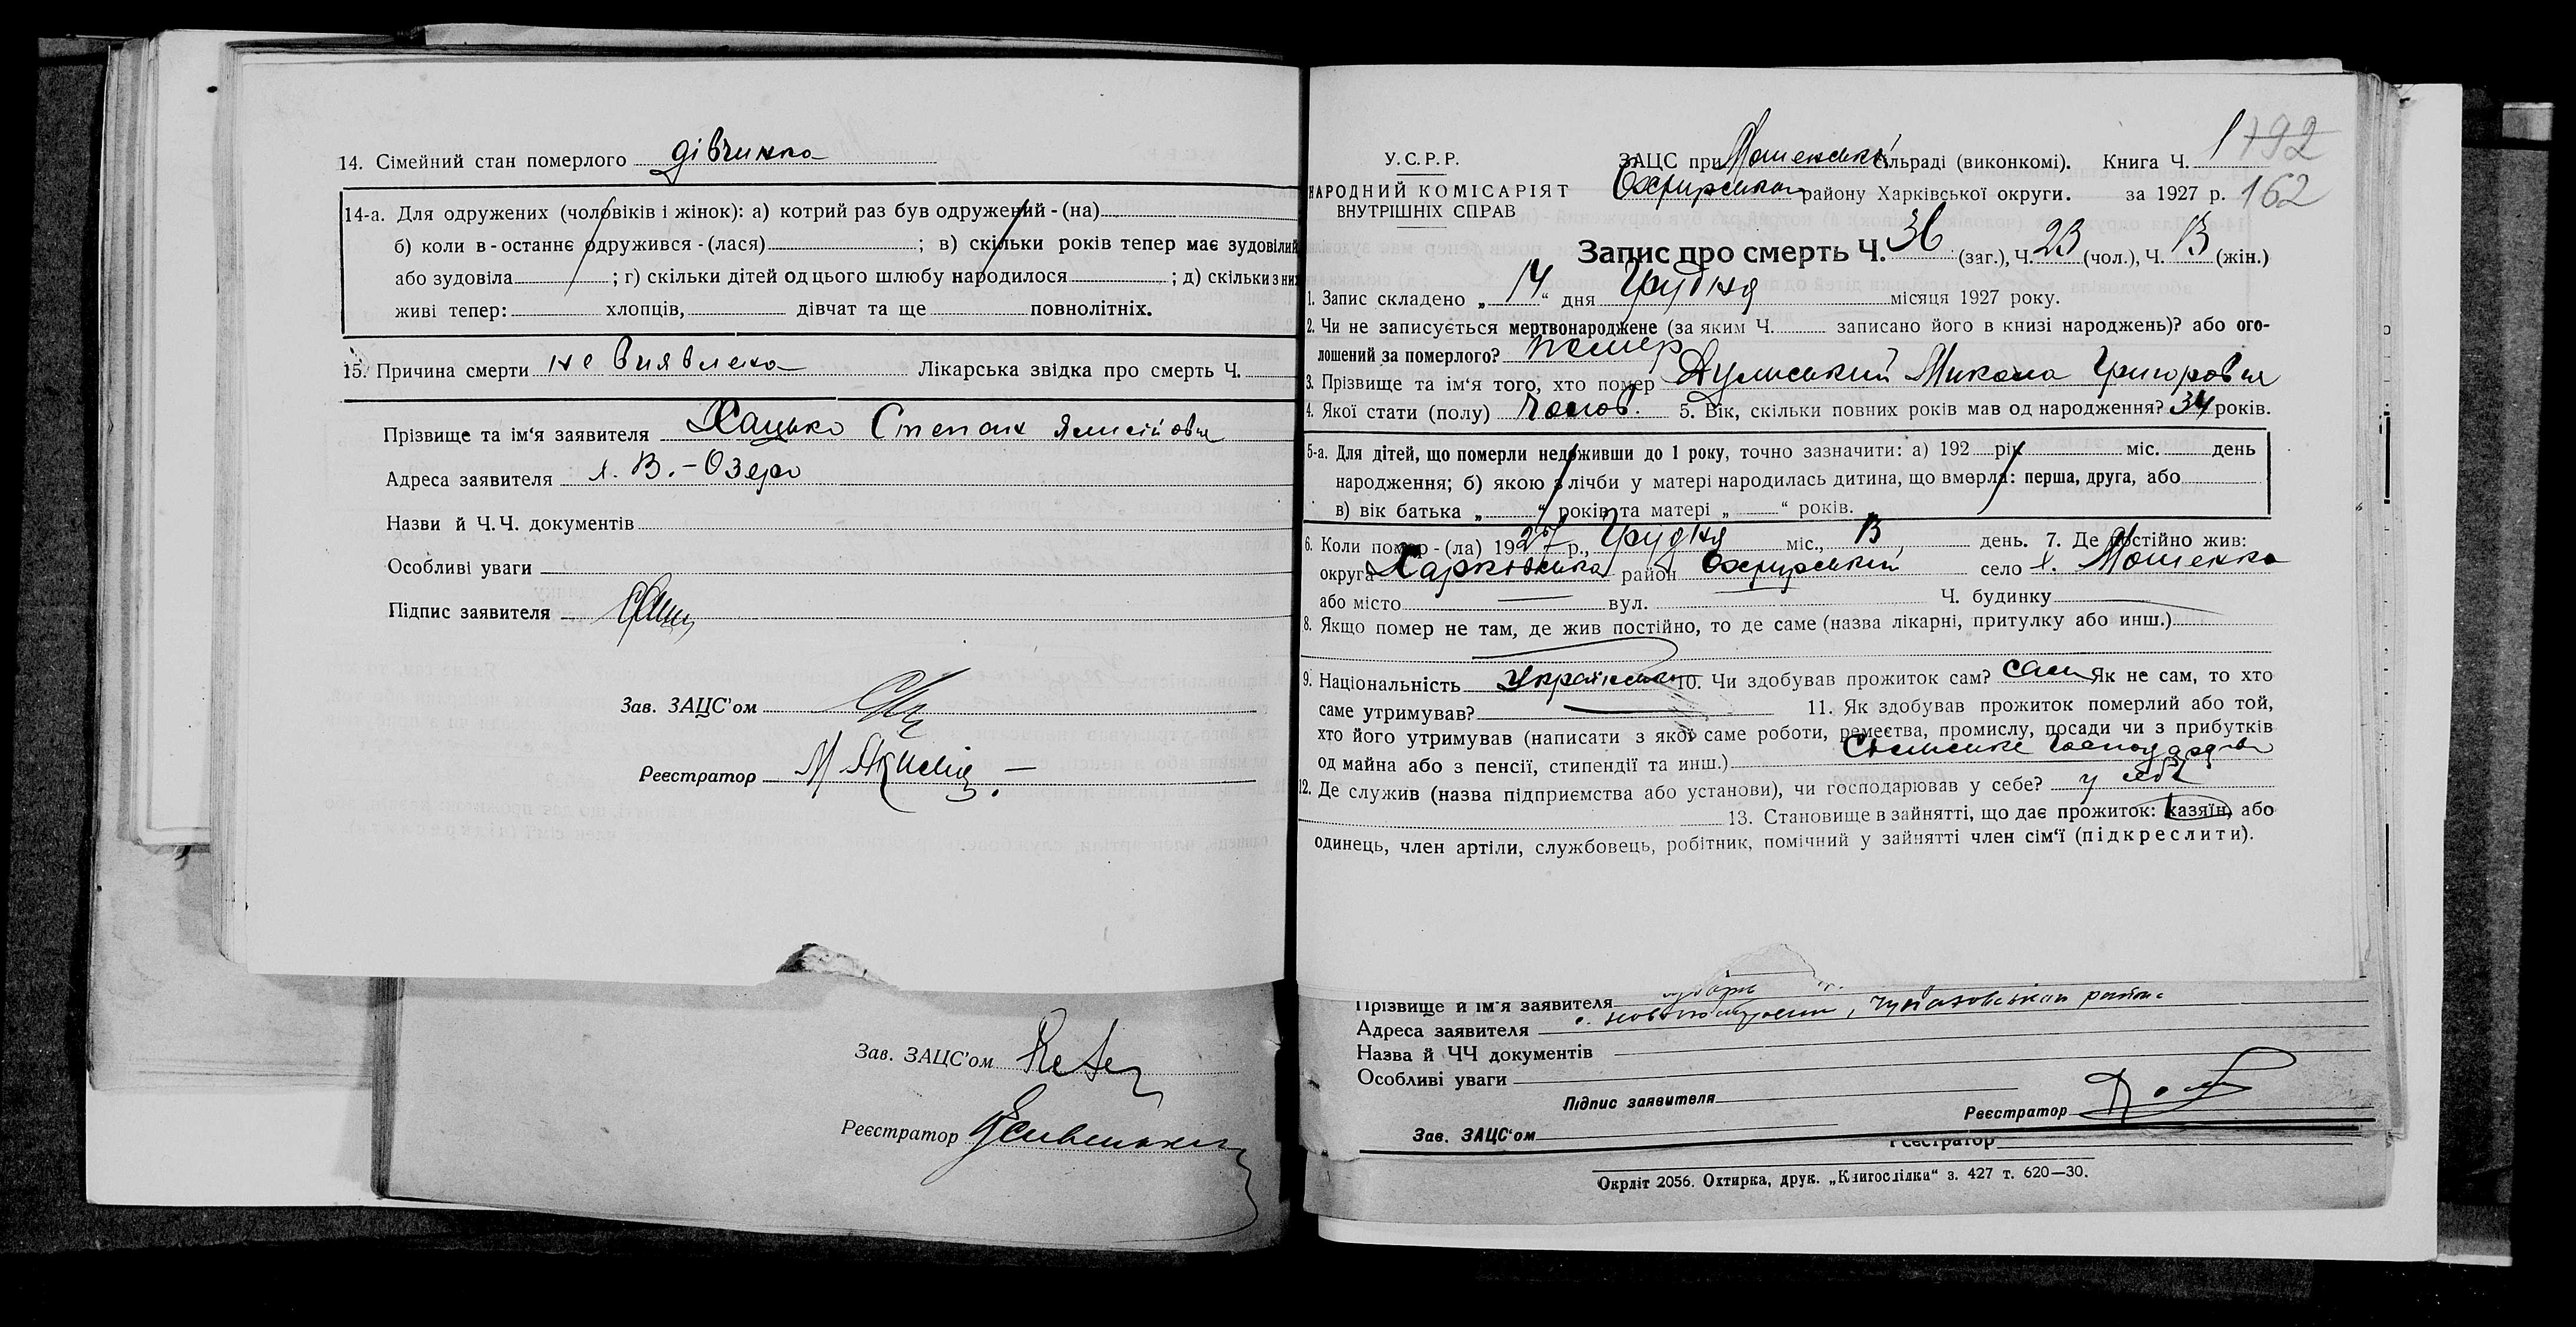 14. Сімейний стан померлого дівчинка
14-а. Для одружених (чоловіків і жінок): а) котрий раз був одружений - (на)
б) коли в-останнє одружився - (лася) ; в) скільки років тепер має зудовілий
або зудовіла ; г) скільки дітей од цього шлюбу народилося ; д) скільки з них
живі тепер: хлопців, дівчат та ще повнолітніх.
15. Причина смерти не виявлена Лікарська звідка про смерть Ч.
Прізвище та ім'я заявителя Хацько Степан
Адреса заявителя х. В.-Озеро
Назви й Ч.Ч. документів
Особливі уваги
Підпис заявителя
Зав. ЗАЦС'ом
Реєстратор
Зав. ЗАЦС'ом
Реєстратор
У.С.Р.Р.
НАРОДНИЙ КОМІСАРІЯТ
ВНУТРІШНІХ СПРАВ
ЗАЦС при Мошенській сільраді (виконкомі). Книга Ч. 1 192
Охтирського району Харківської округи. за 1927 р. 162
Запис про смерть Ч. 36 (заг.), Ч. 23 (чол.), Ч. 13 (жін.)
1. Запис складено „ 14 “ дня Грудня місяця 1927 року.
2. Чи не записується мертвонароджене (за яким Ч. записано його в книзі народжень)? або ого-
лошений за померлого? помер
3. Прізвище та ім'я того, хто помер Микола Григорович
4. Якої стати (полу) чолов. 5. Вік, скільки повних років мав од народження? 34 років.
5-а. Для дітей, що померли недоживши до 1 року, точно зазначити: а) 192 рік міс. день
народження; б) якою з лічби у матері народилась дитина, що вмерла: перша, друга, або
в) вік батька „ “ років та матері „ “ років.
6. Коли помер - (ла) 1927 р., Грудня міс., 13, день. 7. Де постійно жив:
округа Харківська район Охтирський село х. Мошенка
або місто — вул. — Ч. будинку —
8. Якщо помер не там, де жив постійно, то де саме (назва лікарні, притулку або инш.)
9. Національність Українець 10. Чи здобував прожиток сам? сам Як не сам, то хто
саме утримував? — 11. Як здобував прожиток померлий або той,
хто його утримував (написати з якої саме роботи, ремества, промислу, посади чи з прибутків
од майна або з пенсії, стипендії та инш.) Сільське господарство
12. Де служив (назва підприємства або установи), чи господарював у себе? у себе
13. Становище в зайнятті, що дає прожиток: хазяїн, або
одинець, член артіли, службовець, робітник, помічний у зайнятті член сім'ї (підкреслити).
Прізвище й ім'я заявителя
Адреса заявителя
Назва й ЧЧ документів
Особливі уваги
Підпис заявителя
Реєстратор
Зав. ЗАЦС'ом
Реєстратор
Окрліт 2056. Охтирка, друк. „Книгоспілки“ з. 427 т. 620—30.